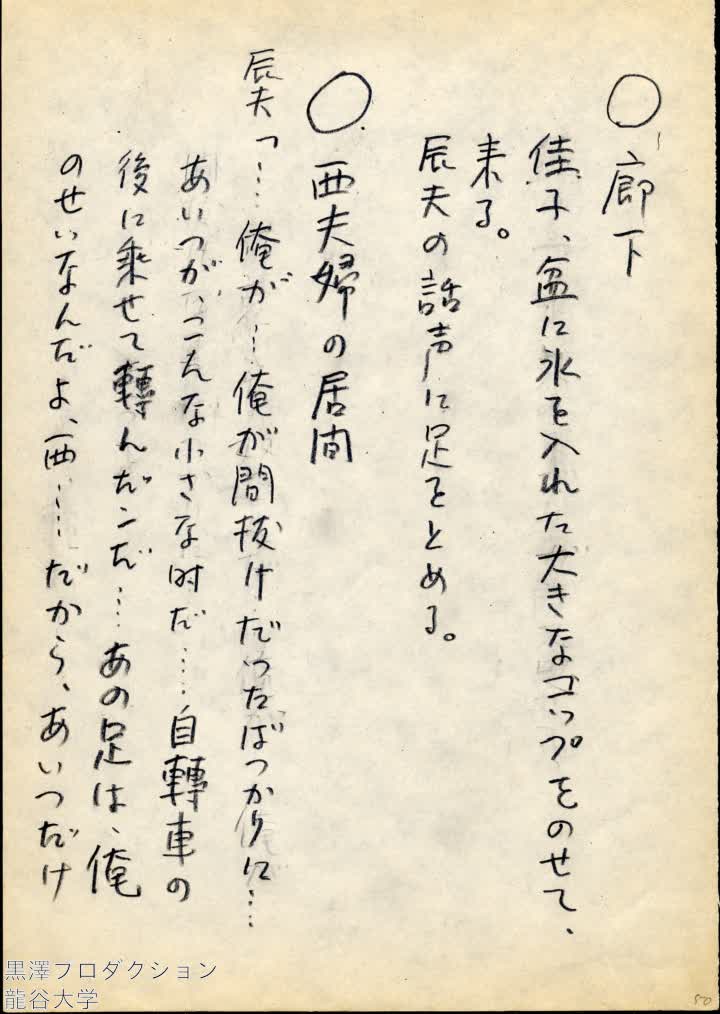 ○廊下
佳子、盆に氷を入れた大きなコップをのせて、
来る。
辰夫の話声に足をとめる。
○西夫婦の居間
辰夫っ…俺が…俺が間抜けだったばっかりに…
あいつが、こんな小さな時だ……自轉車の
後に乗せて轉んだンだ…あの足は、俺
のせいなんだよ、西……だから、あいつだけ
黒澤プロダクション
龍谷大学
50